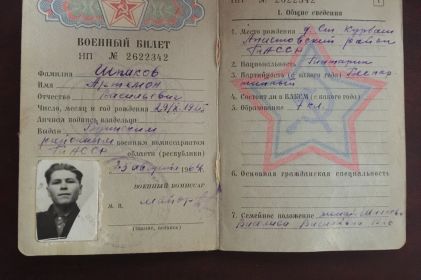 ВОЕННЫЙ БИЛЕТ
НП № 2622342
Фамилия Шпаков
Имя Артемон
Отчество Васильевич
Число, месяц и год рождения
Личная подпись владельца:
Выдан
районным военным комиссариатом
ТАССР области (республики)
196
ВОЕННЫЙ КОМИССАР
М. П. майор
(звание, подпись)
НП № 2622342
1
I. Общие сведения
1. Место рождения
Апастовский район
ТАССР
2. Национальность
3. Партийность (с какого года) беспар
тийный
4. Состоит ли в ВЛКСМ (с какого года)
5. Образование 7 кл.
6. Основная гражданская специальность
7. Семейное положение